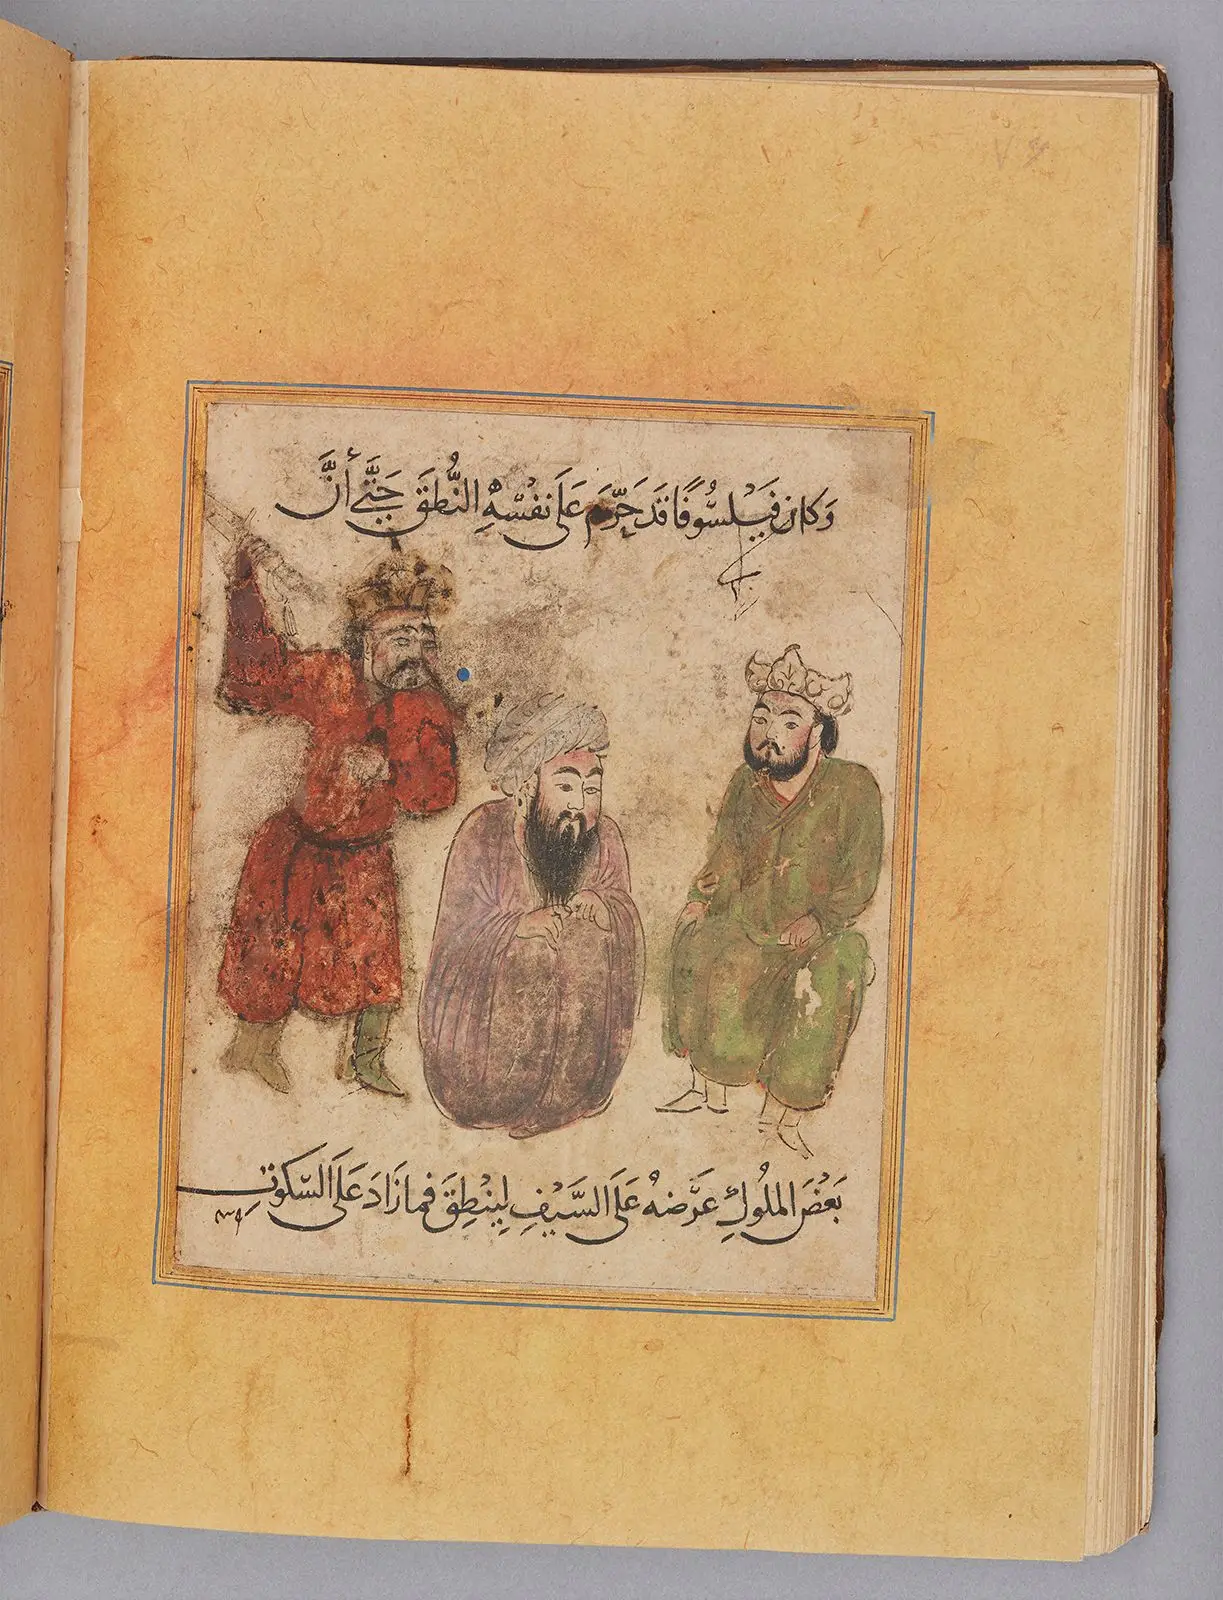 وَكَانَ فَيْلسُوفًا قَدْ حَرَّمَ عَلَى نَفْسِهِ النُّطقَ حَتَّى أنَّ
بَعْضَ الملُوكِ عَرَّضهُ عَلَى السَّيْفِ لِيَنْطِقَ فما زَادَ عَلَى السّكوتِ